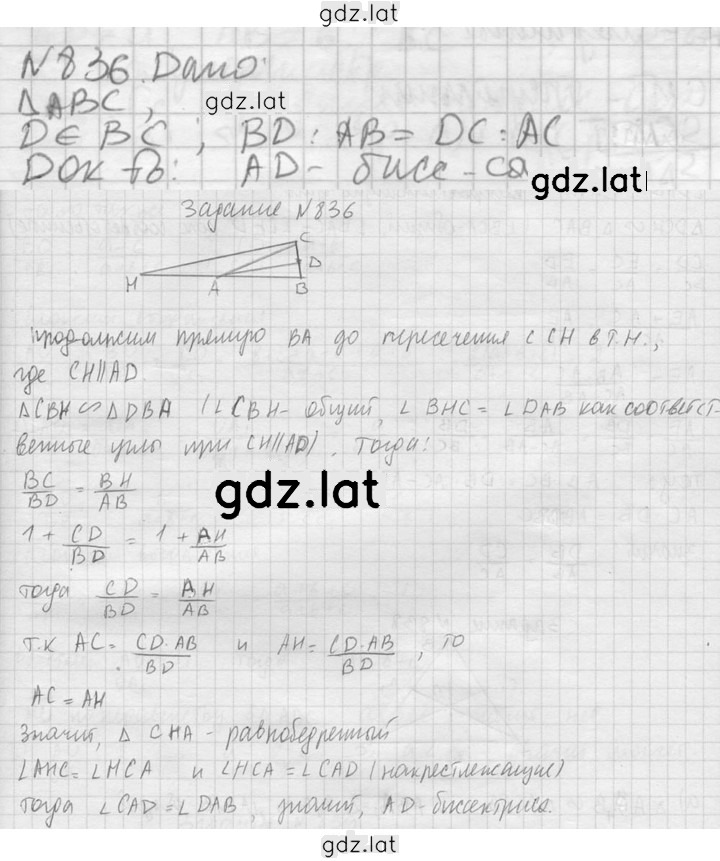 gdz.lat
N836 Дано:
ΔABC, gdz.lat
D∈BC ; BD : AB = DC : AC
Док-ть: AD - бисс-са gdz.lat
Задание N836
C
D
H A B
Продолжим прямую BA до пересечения с CH в т.H.,
где CH||AD.
ΔCBH ∽ ΔDBA (∠CBH - общий, ∠BHC = ∠DAB как соответст-
венные углы при CH||AD). Тогда:
BC/BD = BH/AB
gdz.lat
1 + CD/BD = 1 + AH/AB
тогда CD/BD = AH/AB
т.к AC = CD·AB/BD и AH = CD·AB/BD, то
AC = AH
Значит, Δ CHA - равнобедренный
∠AHC = ∠HCA и ∠HCA = ∠CAD (накрестлежащие)
тогда ∠CAD = ∠DAB, значит, AD - биссектриса.
gdz.lat